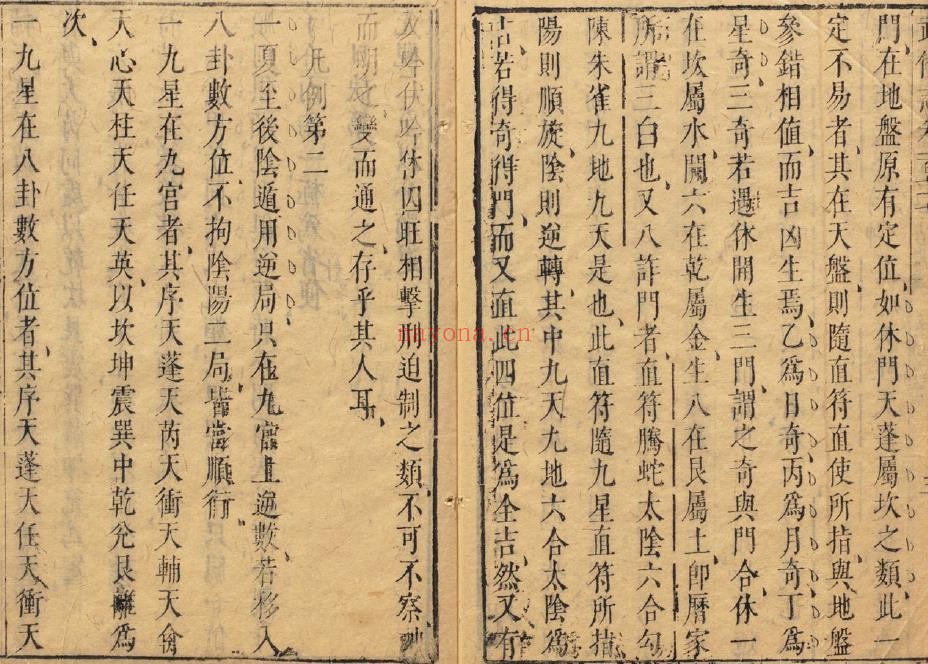 門在地盤原有定位如休門天蓬屬坎之類此一
定不易者其在天盤則隨直符直使所指與地盤
參錯相值而吉凶生焉乙爲日奇丙爲月奇丁爲
星奇三奇若遇休開生三門謂之奇與門合休一
在坎屬水開六在乾屬金生八在艮屬土卽曆家
所謂三白也又八詐門者直符騰蛇太陰六合勾
陳朱雀九地九天是也此直符隨九星直符所指
陽則順旋陰則逆轉其中九天九地六合太陰爲
吉若得奇得門而又直此四位是爲全吉然又有
伏吟休囚旺相擊刑迫制之類不可不察神
而明之變而通之存乎其人耳
凡例第二
一夏至後陰遁用逆局只在九宫上逆數若移入
八卦數方位不拘陰陽二局皆當順行
一九星在九宮者其序天蓬天芮天衝天輔天禽
天心天柱天任天英以坎坤震巽中乾兌艮離爲
次
一九星在八卦數方位者其序天蓬天任天衝天
myona.cn